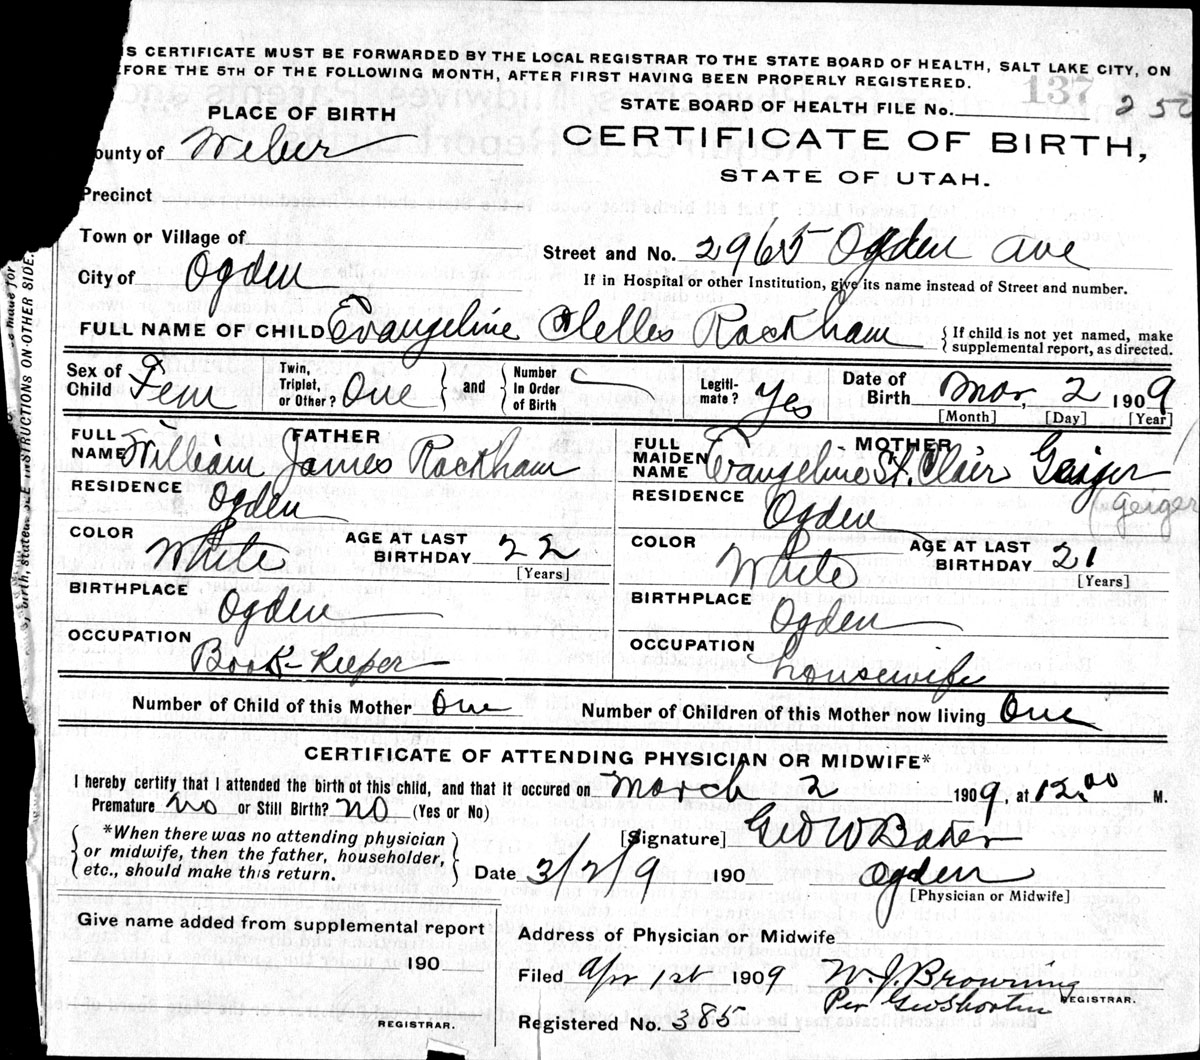 IS CERTIFICATE MUST BE FORWARDED BY THE LOCAL REGISTRAR TO THE STATE BOARD OF HEALTH, SALT LAKE CITY, ON
EFORE THE 5TH OF THE FOLLOWING MONTH, AFTER FIRST HAVING BEEN PROPERLY REGISTERED.
137
STATE BOARD OF HEALTH FILE No. 250
PLACE OF BIRTH
CERTIFICATE OF BIRTH,
STATE OF UTAH.
ounty of Weber
Precinct
Town or Village of
Street and No. 2965 Ogden Ave
City of Ogden
If in Hospital or other Institution, give its name instead of Street and number.
FULL NAME OF CHILD Evangeline Rackham { If child is not yet named, make
supplemental report, as directed.
Sex of Child Fem Twin, Triplet, or Other? One } and { Number In Order of Birth Legiti-mate? Yes Date of Birth Mar, 2 1909
[Month] [Day] [Year]
FATHER
FULL NAME William James Rackham
MOTHER
FULL MAIDEN NAME Evangeline St. Clair Geiger
Geiger
RESIDENCE Ogden
RESIDENCE Ogden
COLOR White AGE AT LAST BIRTHDAY 22 [Years]
COLOR White AGE AT LAST BIRTHDAY 21 [Years]
BIRTHPLACE Ogden
BIRTHPLACE Ogden
OCCUPATION Book-Keeper
OCCUPATION housewife
Number of Child of this Mother One Number of Children of this Mother now living One
CERTIFICATE OF ATTENDING PHYSICIAN OR MIDWIFE*
I hereby certify that I attended the birth of this child, and that it occured on March 2 1909, at 12.00 M.
Premature? no or Still Birth? NO (Yes or No)
{ *When there was no attending physician
or midwife, then the father, householder,
etc., should make this return. }
[Signature] Geo W Baker
Date 3/2/9 190 Ogden
[Physician or Midwife]
Give name added from supplemental report
190
REGISTRAR.
Address of Physician or Midwife
Filed Apr 1st 1909 W. J. Browning
Per Geo Shorten
REGISTRAR.
Registered No. 385
birth, stated. SEE INSTRUCTIONS ON OTHER SIDE.
made for